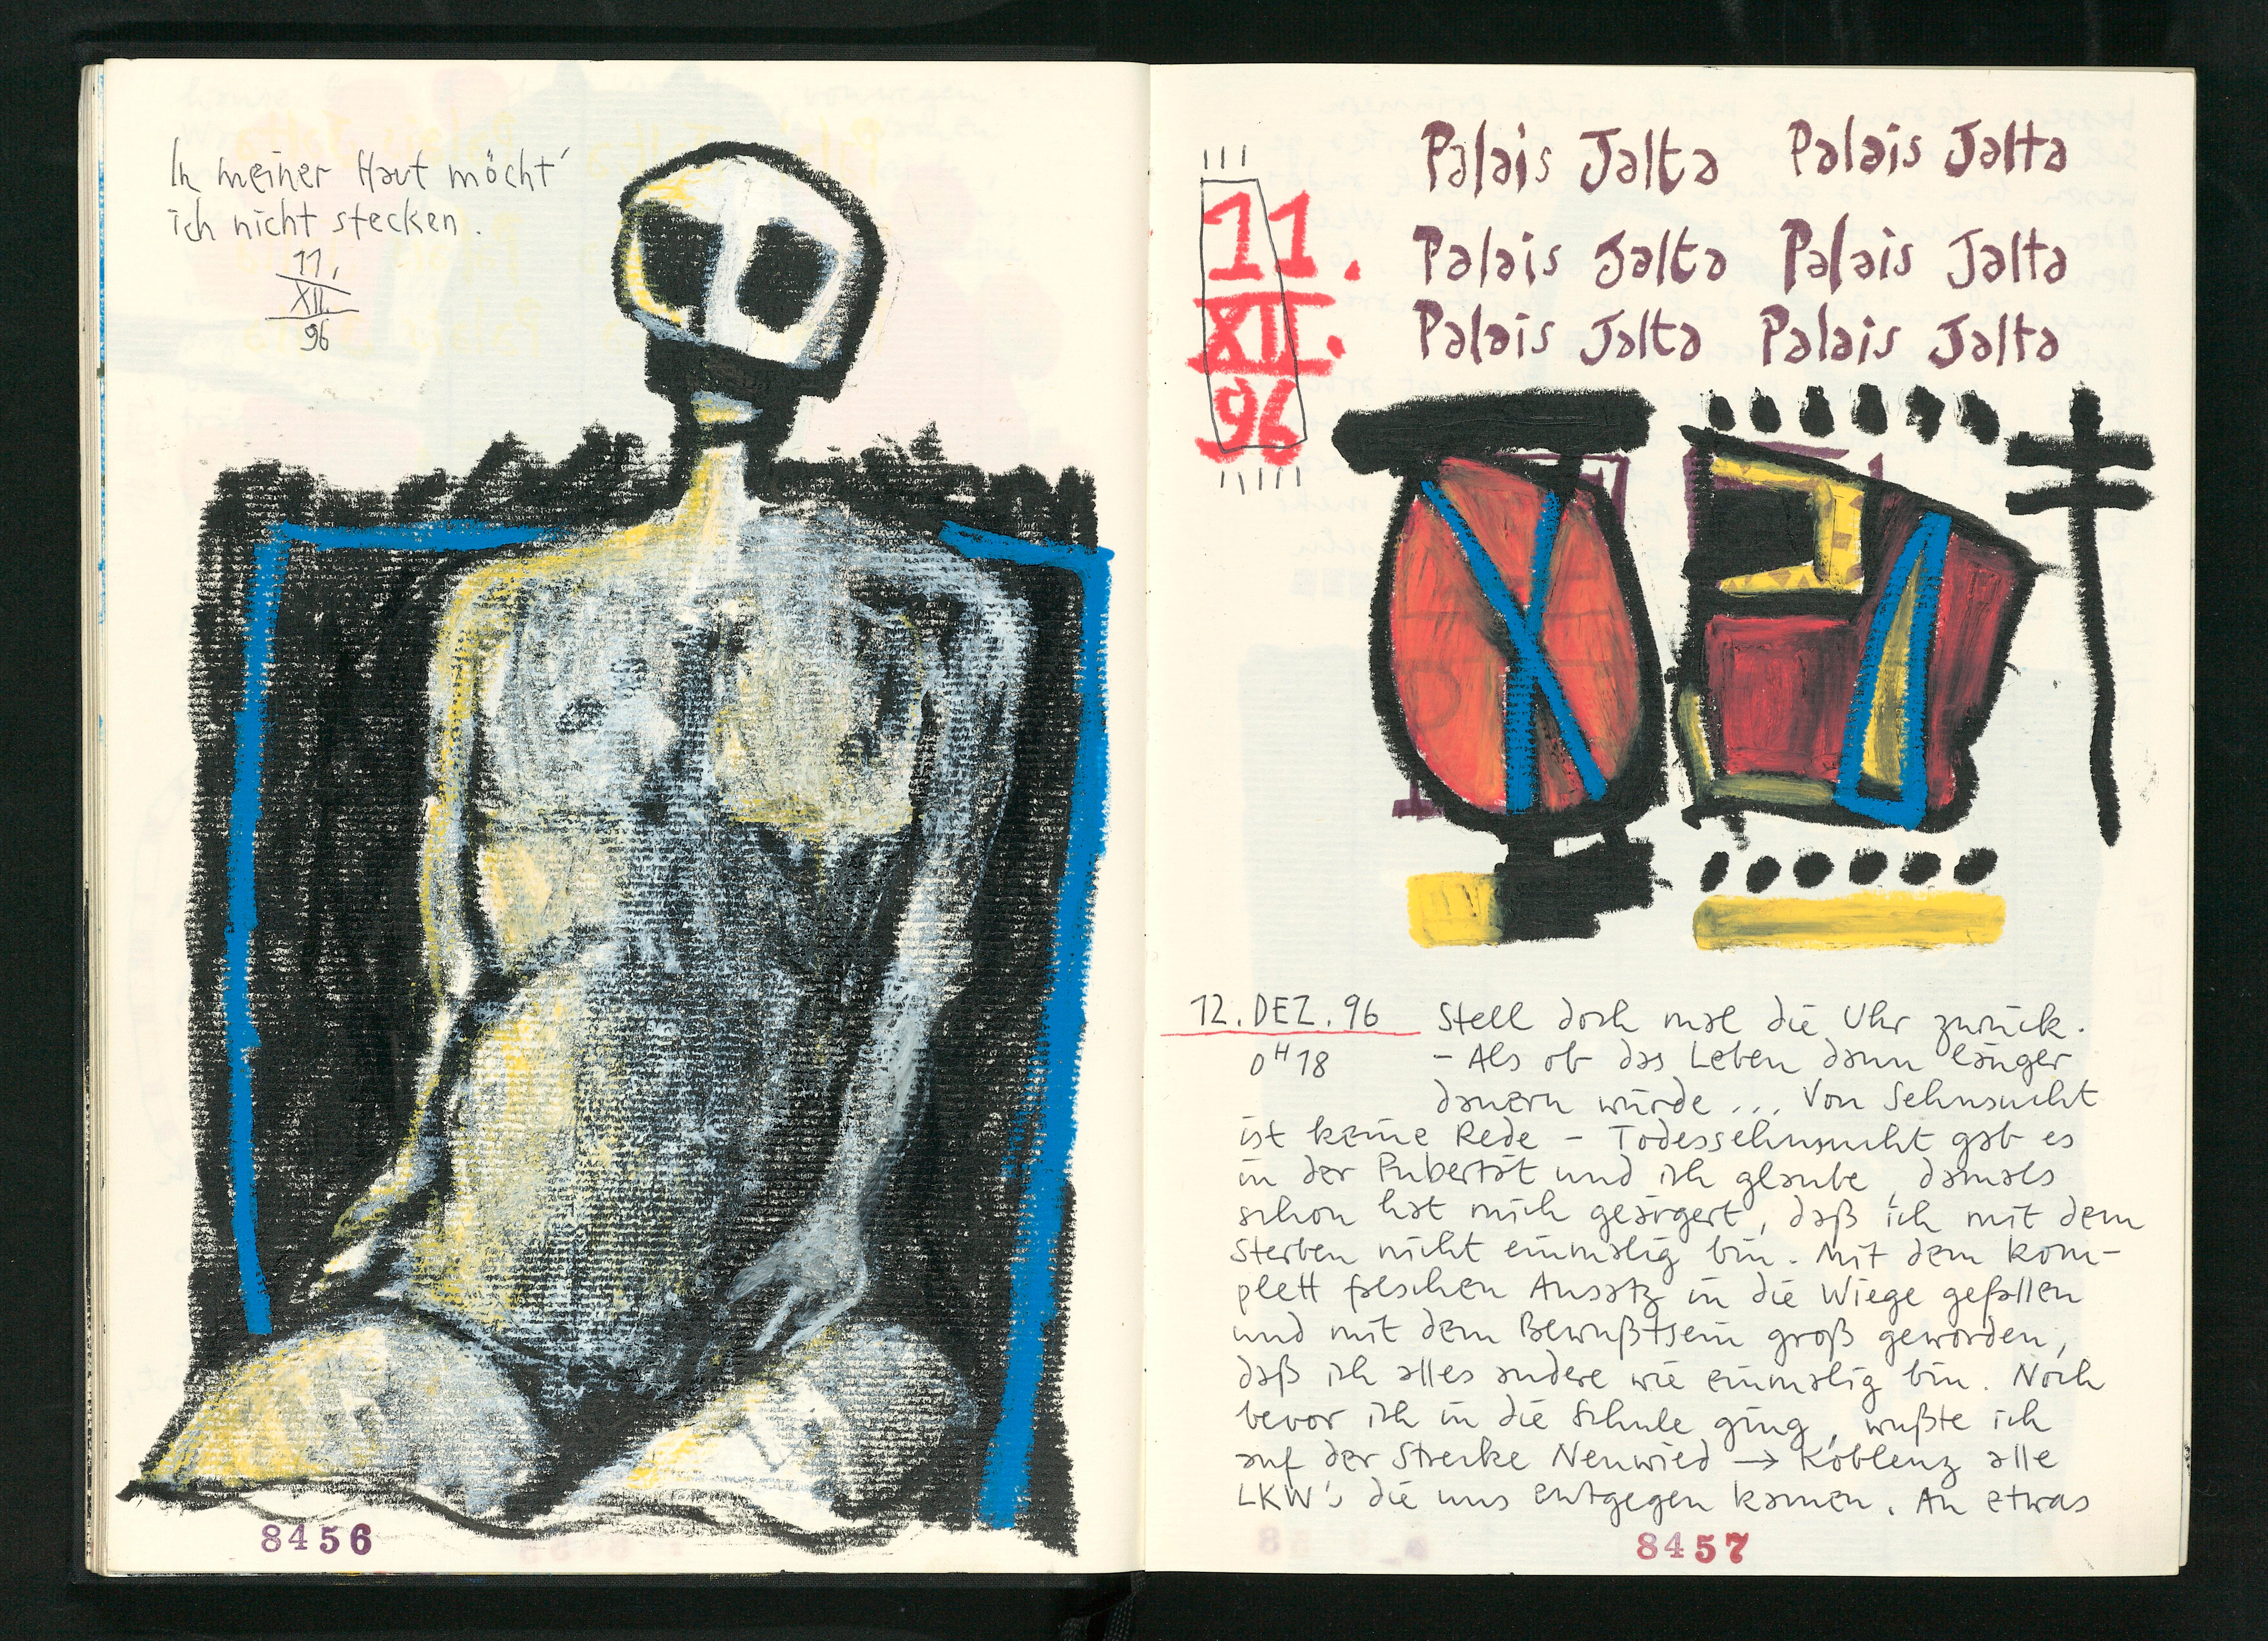 In meiner Haut möcht'
ich nicht stecken.
11.
XII.
96
8456
11.
XII.
96
Palais Jalta Palais Jalta
Palais Jalta Palais Jalta
Palais Jalta Palais Jalta
12. DEZ. 96 Stell doch mal die Uhr zurück.
0H18 - Als ob das Leben dann länger
dauern würde ... Von Sehnsucht
ist keine Rede - Todessehnsucht gab es
in der Pubertät und ich glaube, damals
schon hat mich geärgert, daß ich mit dem
Sterben nicht einmalig bin. Mit dem kom-
plett falschen Ansatz in die Wiege gefallen
und mit dem Bewußtsein groß geworden,
daß ich alles andere wie einmalig bin. Noch
bevor ich in die Schule ging, wußte ich
auf der Strecke Neuwied → Koblenz alle
LKW's die uns entgegen kamen. An etwas
8457